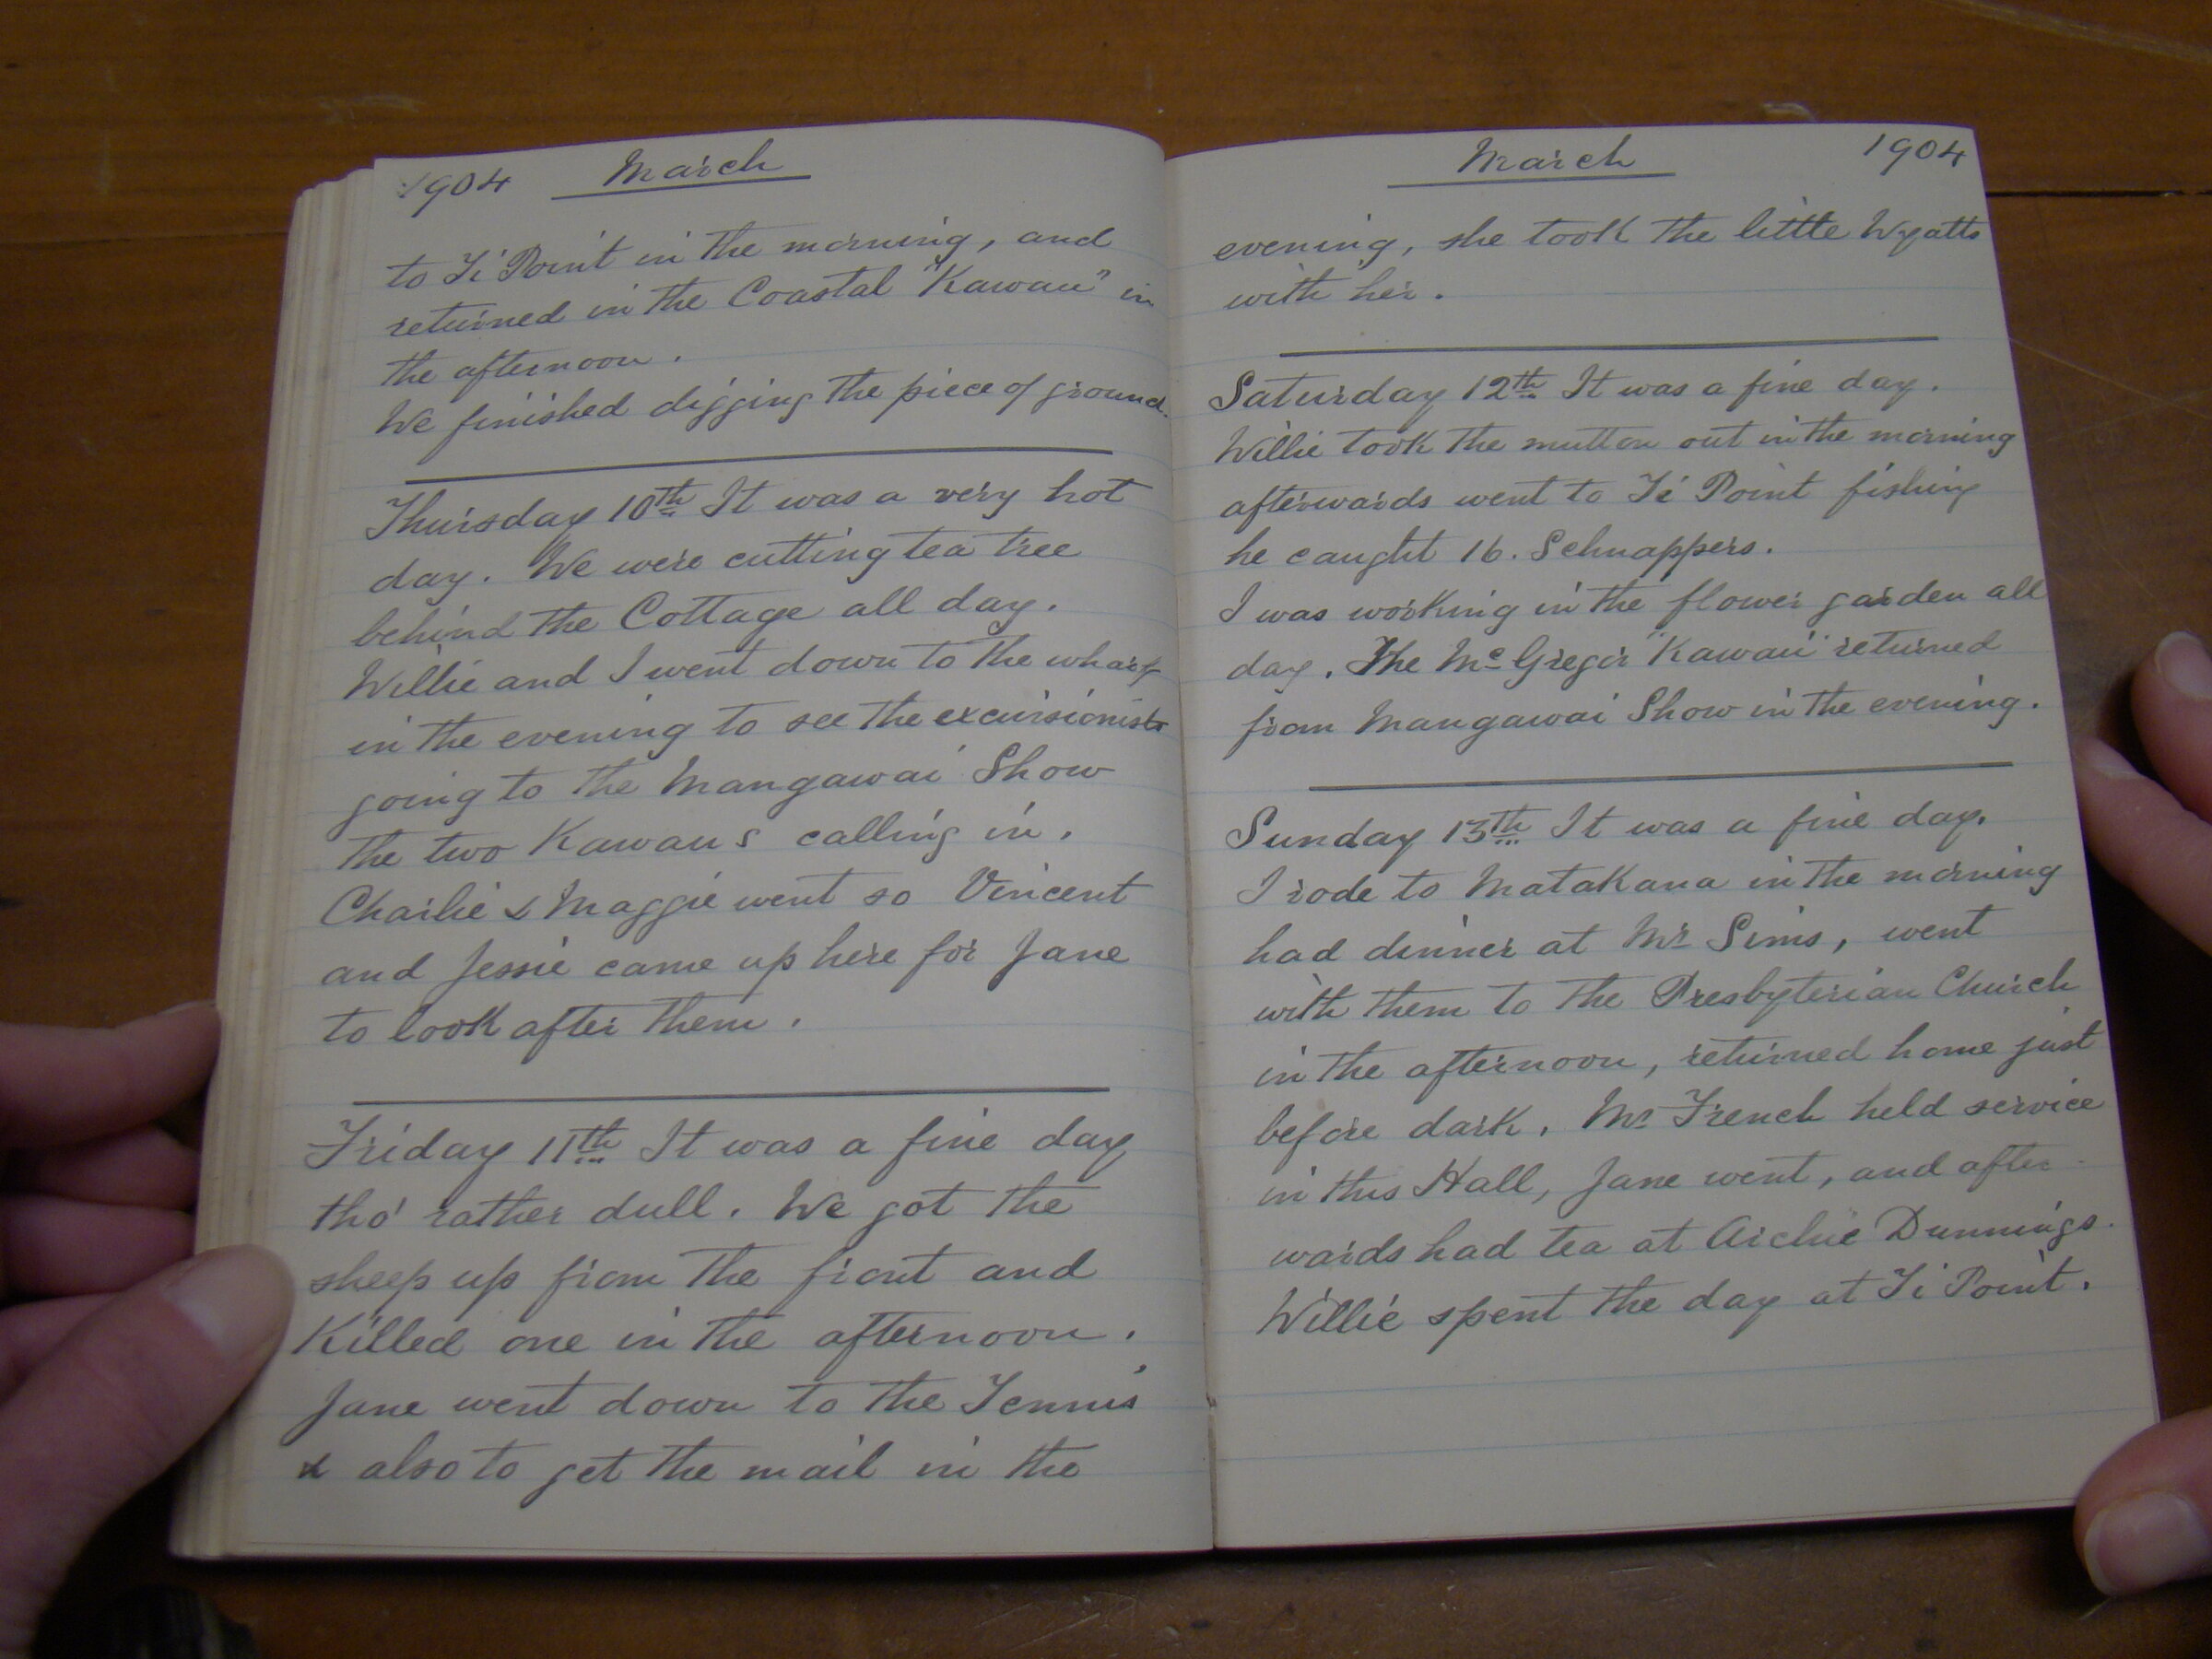 1904 March
to Ti Point in the morning, and
returned in the Coastal "Kawau" in
the afternoon.
We finished digging the piece of ground.
Thursday 10th It was a very hot
day. We were cutting tea tree
behind the Cottage all day.
Willie and I went down to the wharf
in the evening to see the excursionists
going to the Mangawai Show
the two Kawaus calling in.
Charlie & Maggie went so Vincent
and Jessie came up here for Jane
to look after them.
Friday 11th It was a fine day
tho' rather dull. We got the
sheep up from the front and
Killed one in the afternoon.
Jane went down to the Tennis
& also to get the mail in the
March 1904
evening, she took the little Wyatts
with her.
Saturday 12th It was a fine day.
Willie took the mutton out in the morning
afterwards went to Ti Point fishing
he caught 16. Schnappers.
I was working in the flower garden all
day. The McGregor "Kawau" returned
from Mangawai Show in the evening.
Sunday 13th It was a fine day.
I rode to Matakana in the morning
had dinner at Mr Sims, went
with them to the Presbyterian Church
in the afternoon, returned home just
before dark. Mr French held service
in this Hall, Jane went, and after-
wards had tea at Archie Dunnings.
Willie spent the day at Ti Point.